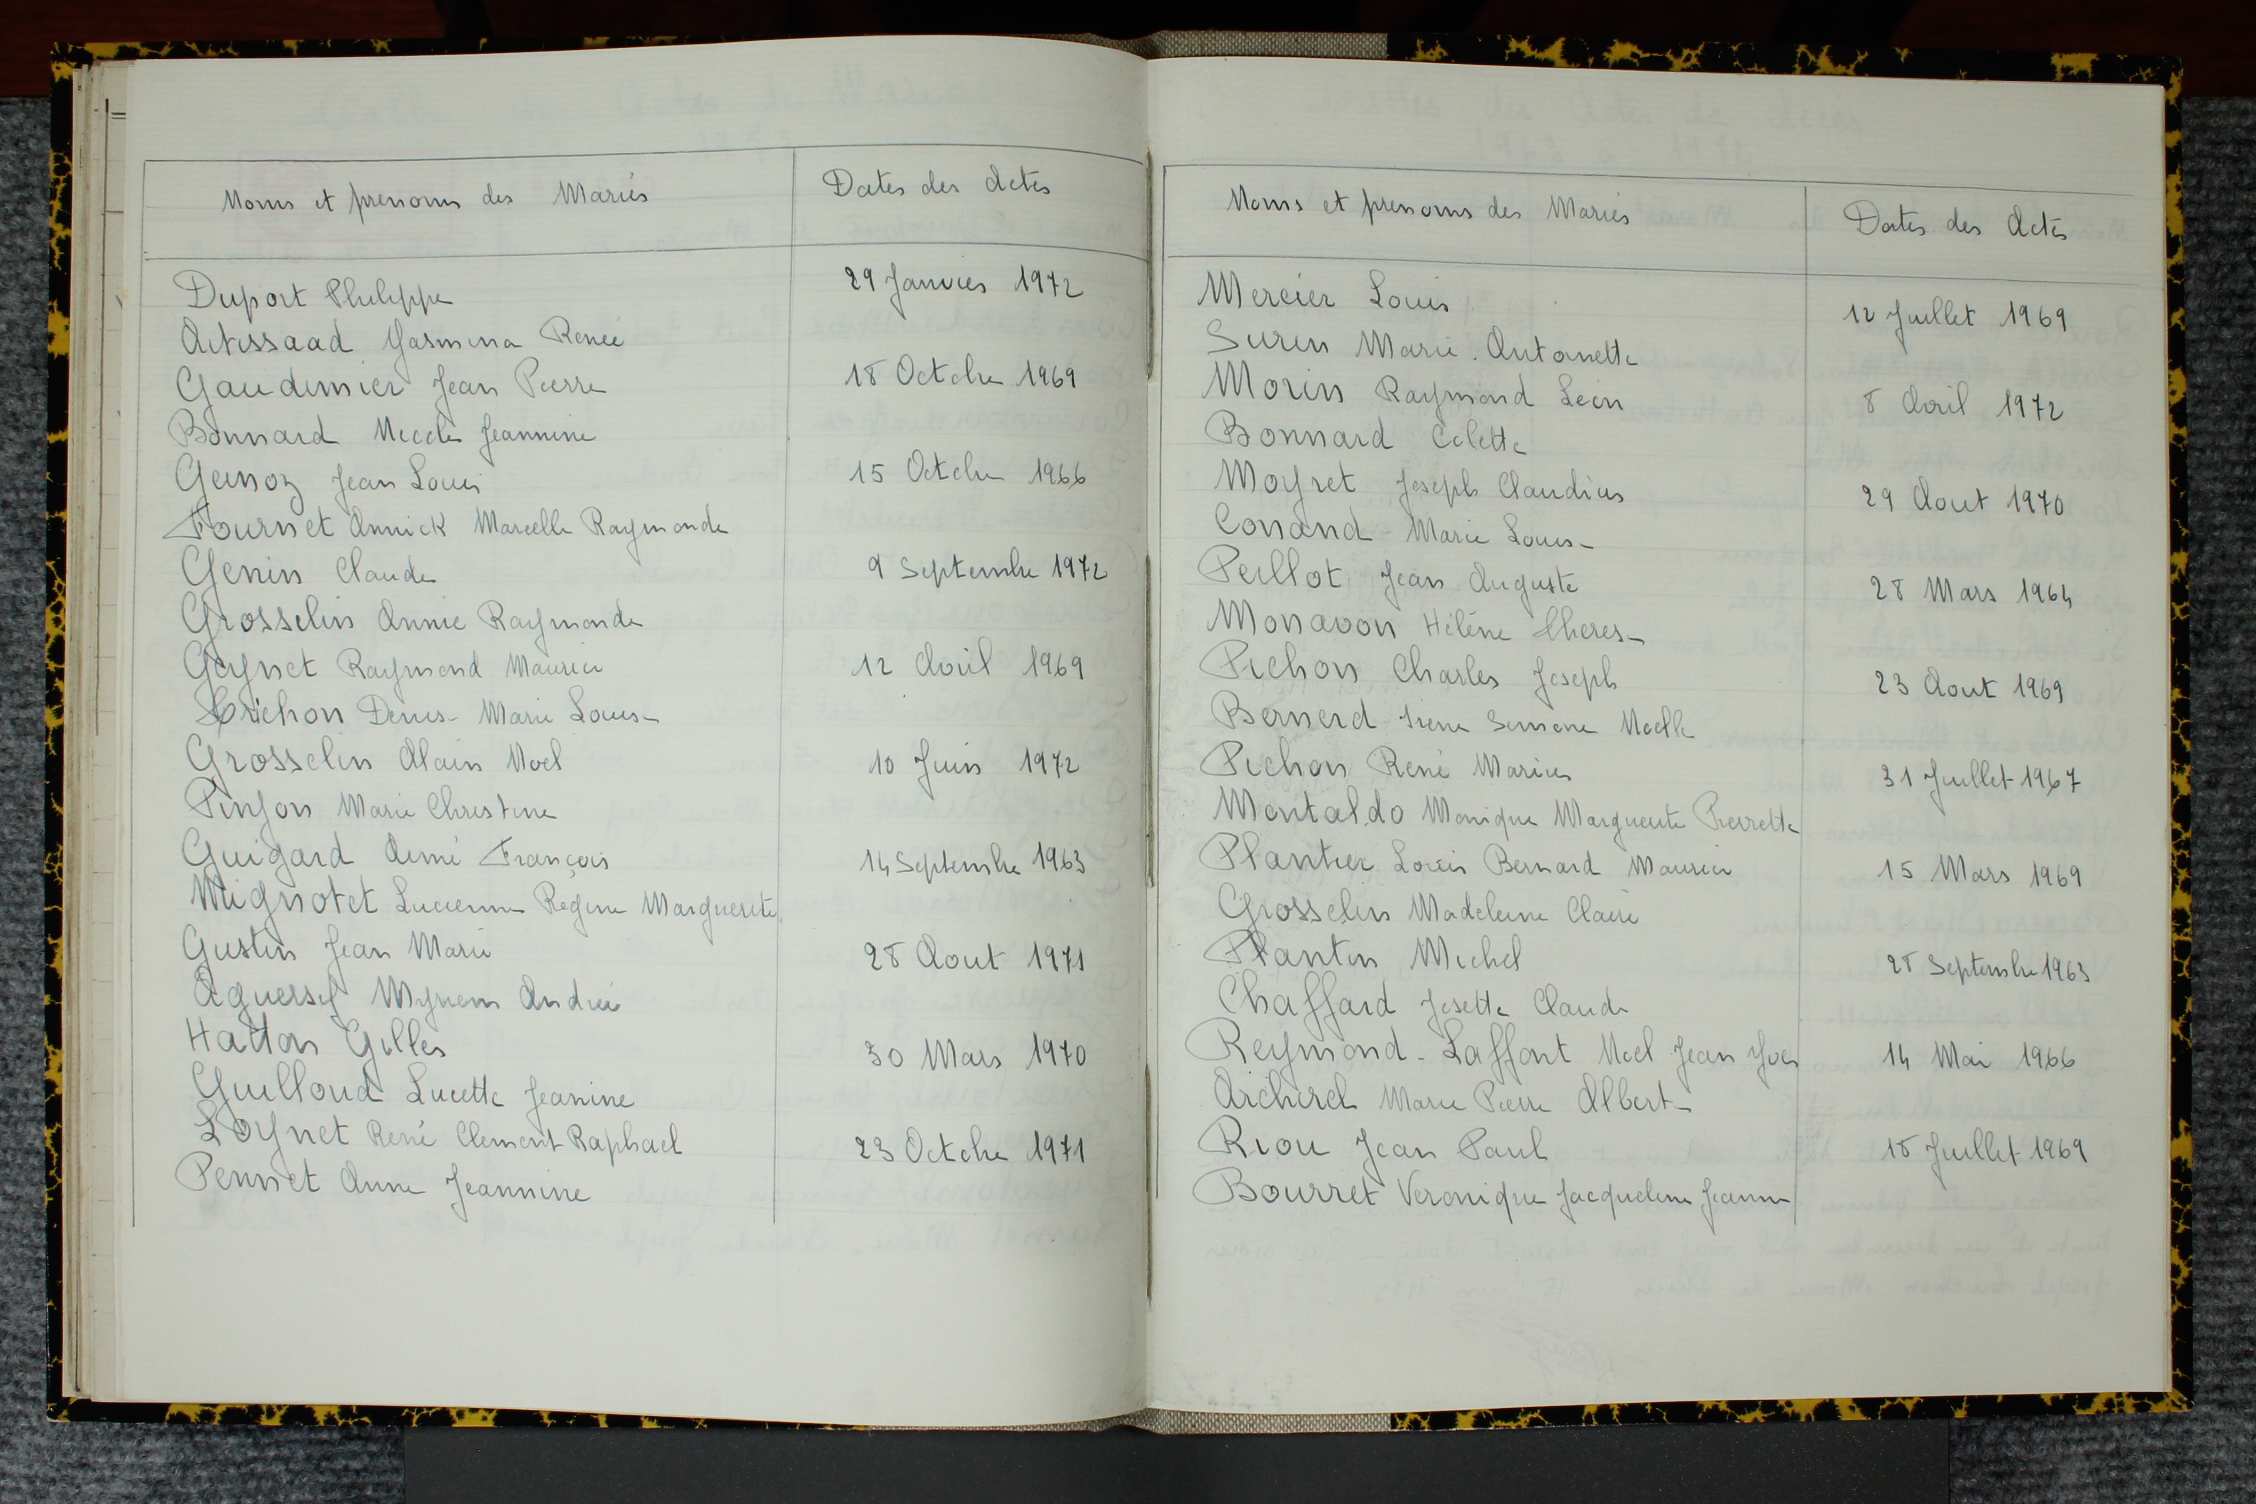 Noms et prenoms des Mariés
Dates des Actes
Duport Philippe
29 Janvier 1972
Aitissaad Yasmina Renée
Gaudemier Jean Pierre
18 Octobre 1969
Bonnard Nicole Jeannine
Genoz Jean Louis
15 Octobre 1966
Fournet Annick Marcelle Raymonde
Genin Claude
9 Septembre 1972
Grosselin Annie Raymonde
Goynet Raymond Maurice
12 Avril 1969
Crichon Denise Marie Louise
Grosselin Alain Noel
10 Juin 1972
Pinjon Marie Christine
Guigard Aimé François
14 Septembre 1963
Mignotet Lucienne Regine Marguerite
Gustin Jean Marie
28 Aout 1971
Aguersif Myriem Andrée
Hatton Gilles
30 Mars 1970
Guilloud Lucette Jeanine
Loynet René Clement Raphael
23 Octobre 1971
Pennet Anne Jeannine
Noms et prenoms des Mariés
Dates des Actes
Mercier Louis
12 Juillet 1969
Surin Marie Antoinette
Morin Raymond Léon
8 Avril 1972
Bonnard Colette
Moyret Joseph Claudius
29 Aout 1970
Conand Marie Louise
Peillot Jean Auguste
28 Mars 1964
Monavon Hélène Therese
Pichon Charles Joseph
23 Aout 1969
Bernerd Irene Simone Noelle
Pichon René Marius
31 Juillet 1967
Montaldo Monique Marguerite Pierrette
Plantier Louis Bernard Maurice
15 Mars 1969
Grosselin Madeleine Claire
Plantin Michel
28 Septembre 1963
Chaffard Josette Claude
Reymond-Laffont Noel Jean Yves
14 Mai 1966
Archirel Marie Pierre Alberte
Riou Jean Paul
18 Juillet 1969
Bourret Veronique Jacqueline Jeanne